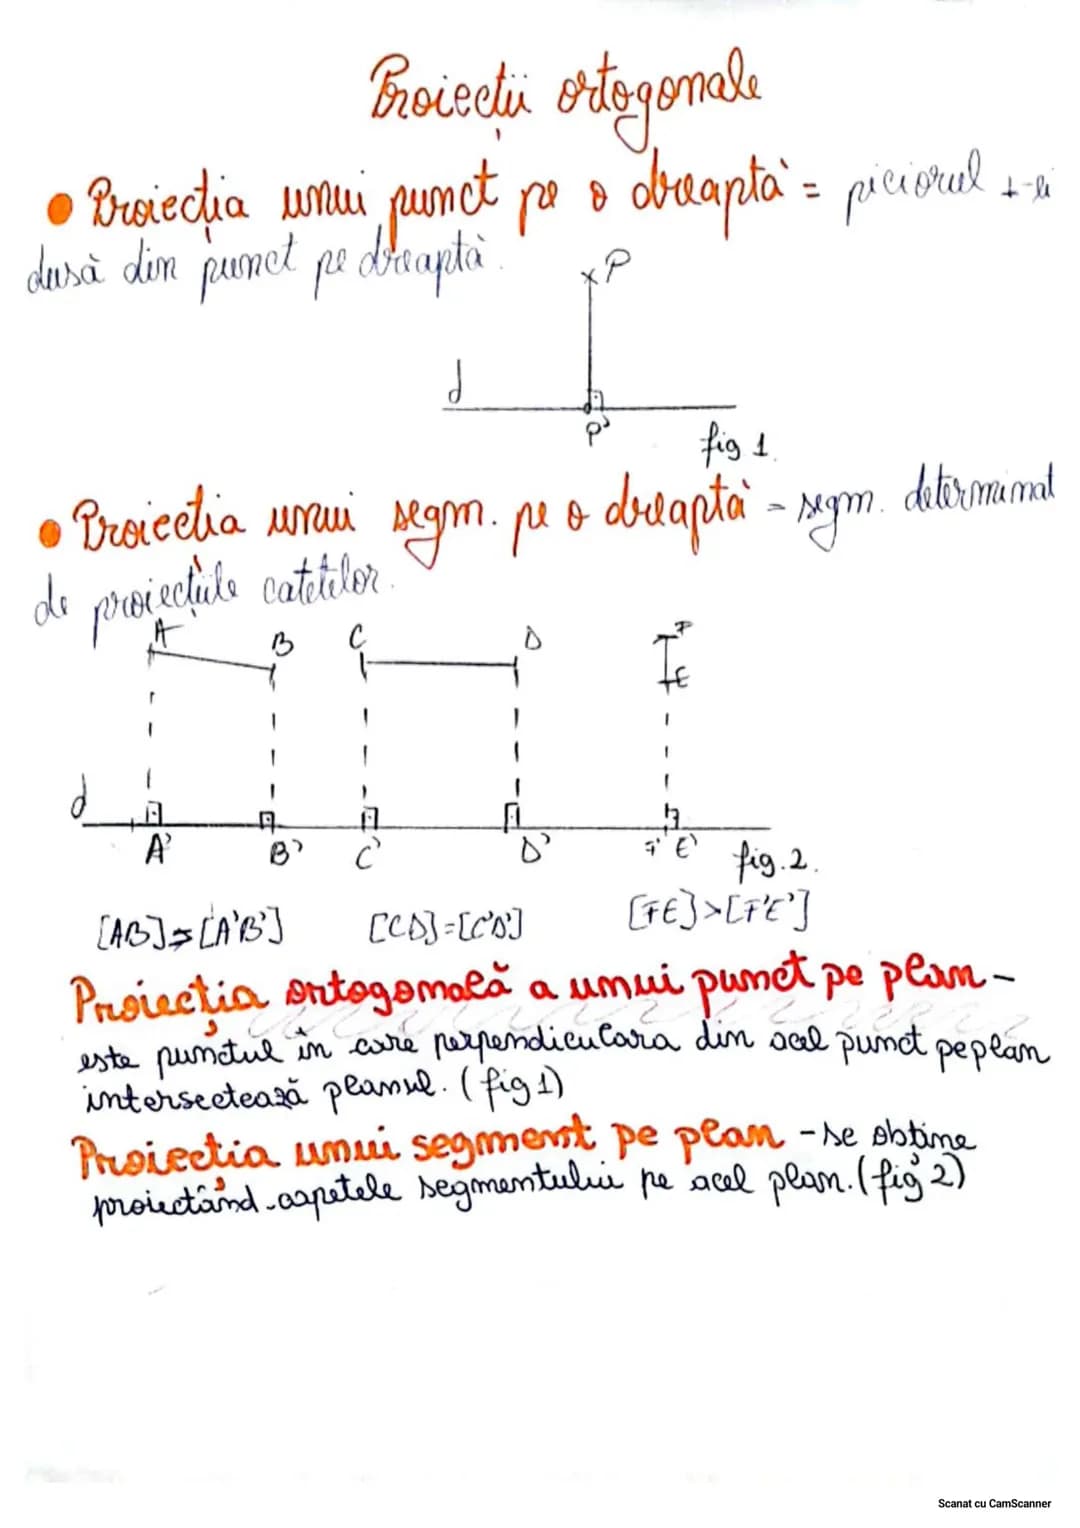 Proiecții ortogonale
• Proiecția unui punct pe o dreaptă = piciorul ⊥-ei
dusă din punct pe dreaptă.
x P
d
P'
fig 1.
• Proiectia unui segm. pe o dreaptă - segm. determinat
de proiecțiile catetelor.
A B C D F
E
d
A' B' C' D' F' E' fig. 2.
[AB]>[A'B'] [CD]=[C'D'] [FE]>[F'E']
Proiecția ortogonală a unui punct pe plan -
este punctul în care perpendiculara din acel punct pe plan
intersectează planul. (fig 1)
Proiectia unui segment pe plan - se obține
proiectând capetele segmentului pe acel plan. (fig 2)
Scanat cu CamScanner